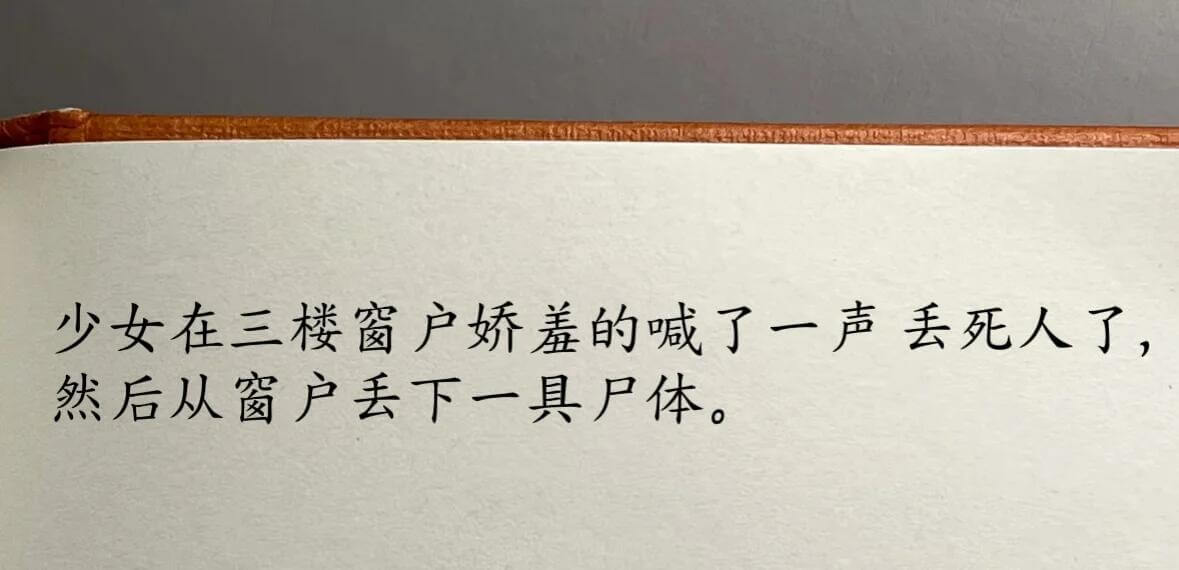 少女在三楼窗户娇羞的喊了一声 丢死人了,
然后从窗户丢下一具尸体。